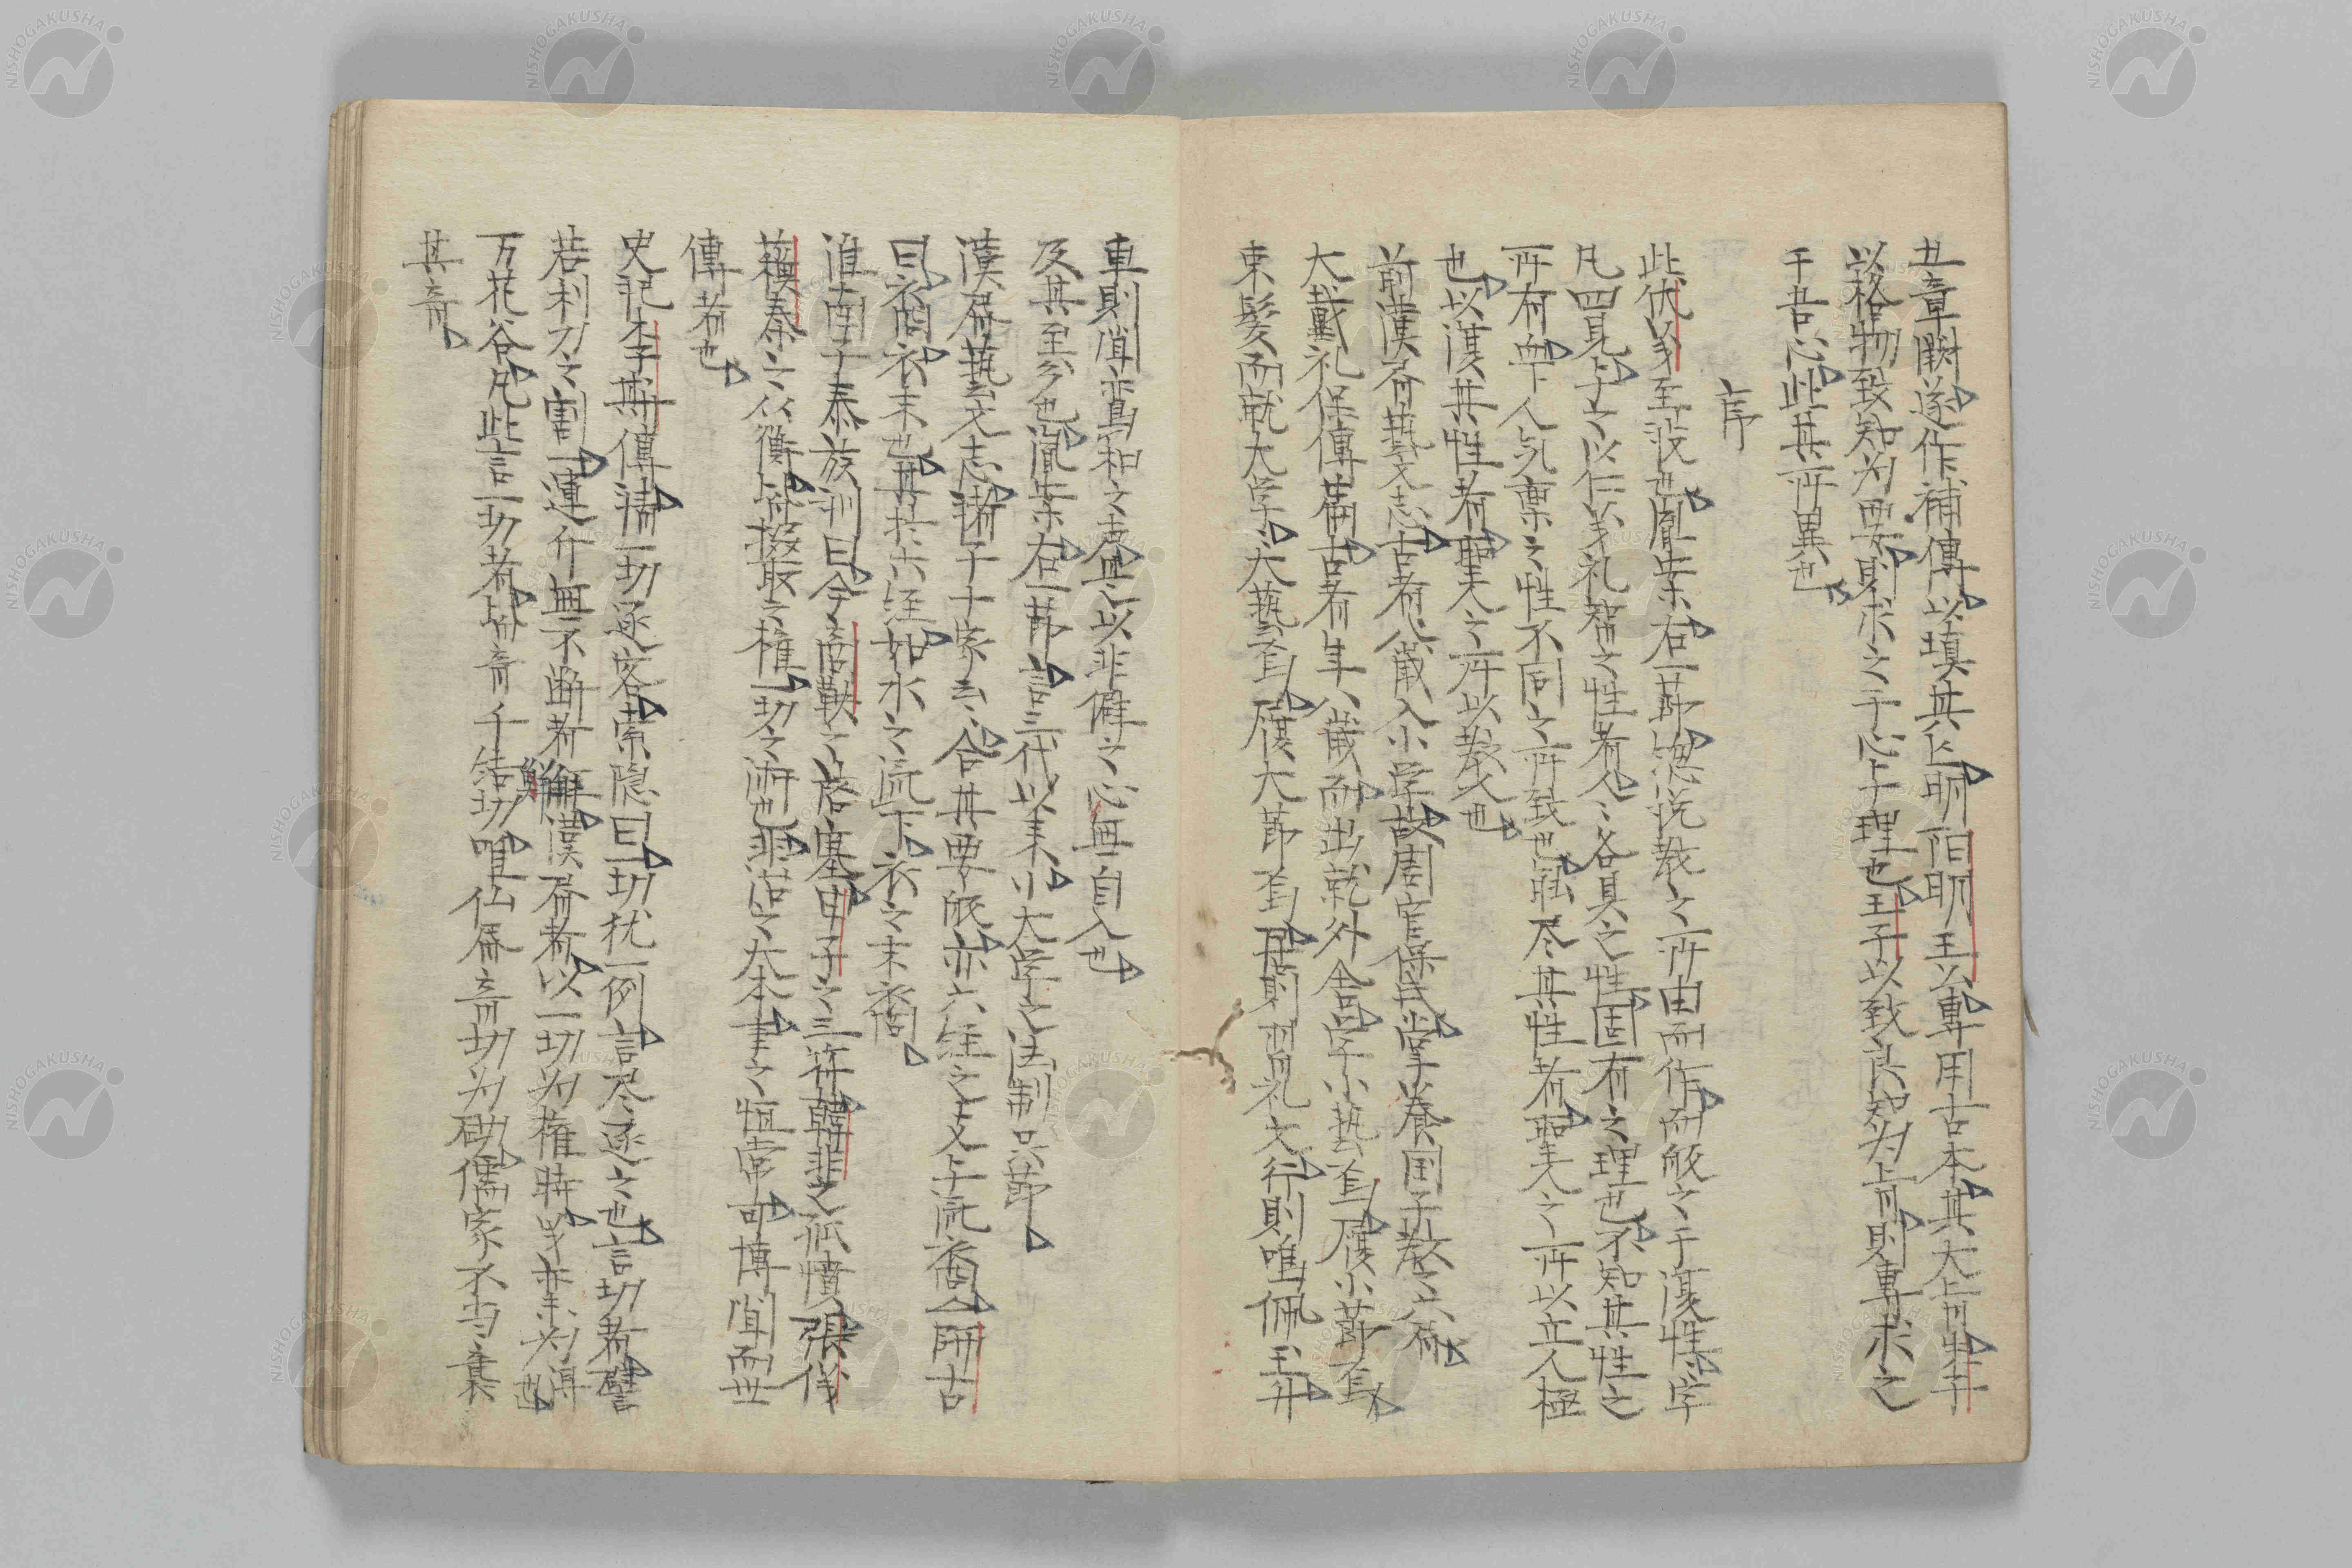 五章闕遂作補傳以填其上明陽明王公專用古本其大旨朱子
以格物致知为要則求之于心上理也王子以致良知为上旨則專求之
于吾心此其所異也
序
此伏羲至設也胤桉右一節總説教之所由而作而皈之于復性字
凡四見上之以仁義礼智之性者人〻各具之性固有之理也不知其性之
所有无下人気稟之性不同之所致也聡尽其性者聖人之所以立人極
也以復其性者聖人之所以教人也
前漢書藝文志古者八歳入小学故周官保氏掌養国子教之六書
大戴礼保傅篇古者年八歳而出就外舎学小藝焉履小節焉
束髪而就大学〻大藝焉履大節焉居則習礼文行則鳴佩玉升
車則聞鸞和之声是以非僻之心無自入也
及其至分也胤桉右一節言三代以来小大学之法制只節
漢書藝文志諸子十家云〻合其要皈亦六経之支与流裔仝師古
曰裔衣末也其於六経如水之流下衣之末裔
淮南子泰族訓曰今商鞅之啓塞申子之三符韓非之孤憤張儀
蘇秦之从衡皆掇取之権一切之術也非治之大本事之恒常可博聞而世
傳者也
史記李斯傳請一切逐客索隠曰一切犹一例言尽逐之也言切者譬
若利刀之割一運斤無不断者解漢書者以一切为権時義亦未为得也
万花谷凡此言一切者皆斉 千結切唯仏居斉切为砌儒家不与彙
其斉